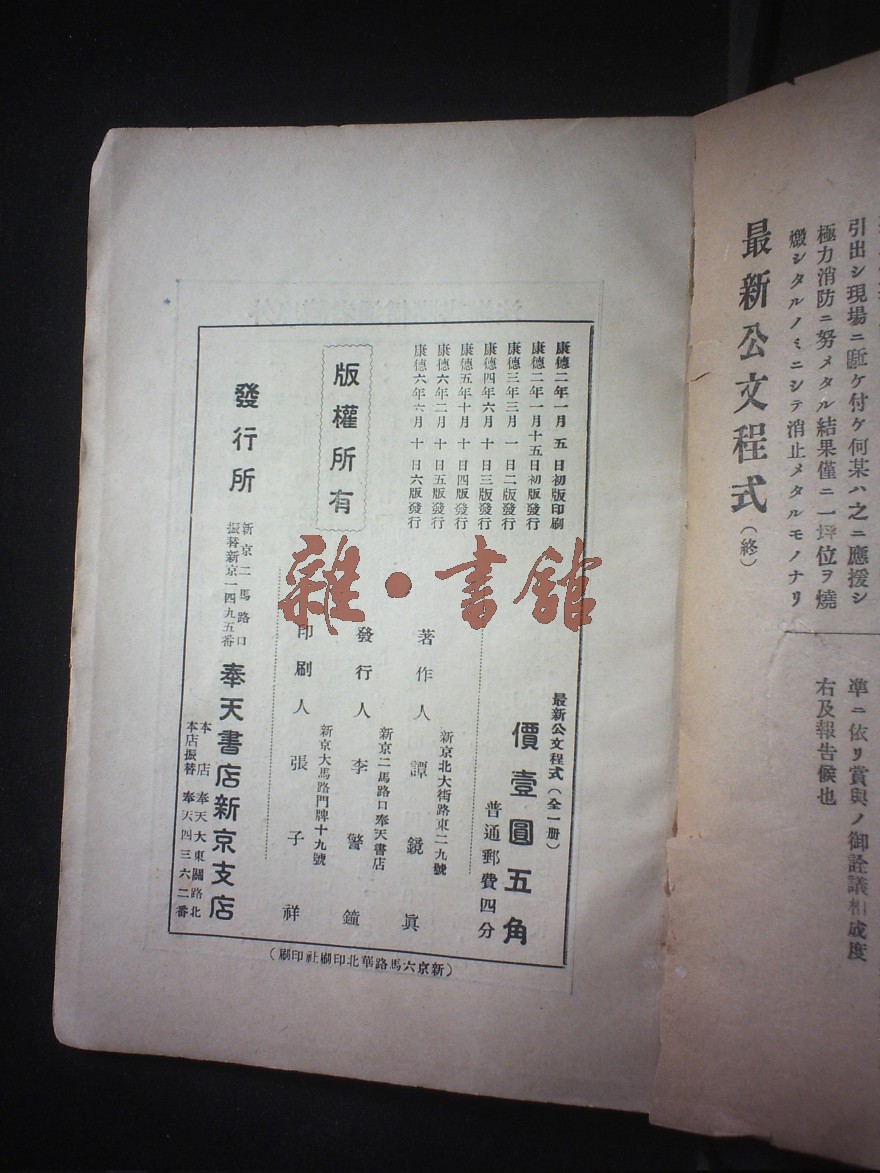 引出シ現場ニ駈ケ付ケ何某ハ之ニ應援シ
極力消防ニ努メタル結果僅ニ一坪位ヲ燒
燬シタルノミニシテ消止メタルモノナリ
最新公文程式(終)
準ニ依リ賞與ノ御詮議相成度
右及報告候也
康德二年一月五日初版印刷
康德二年一月十五日初版發行
康德三年三月一日二版發行
康德四年六月十日三版發行
康德五年十月十日四版發行
康德六年二月十日五版發行
康德六年六月十日六版發行
版權所有
最新公文程式(全一册)
價壹圓五角
普通郵費四分
新京北大街路東二九號
著作人 譚鏡眞
新京二馬路口奉天書店
發行人 李警鐘
新京大馬路門牌十九號
印刷人 張子祥
發行所
新京二馬路口
振替新京一四九五番
奉天書店新京支店
本店 奉天大東關路北
本店振替 奉天四三六二番
(新京六馬路華北印刷社印刷)
雜·書館